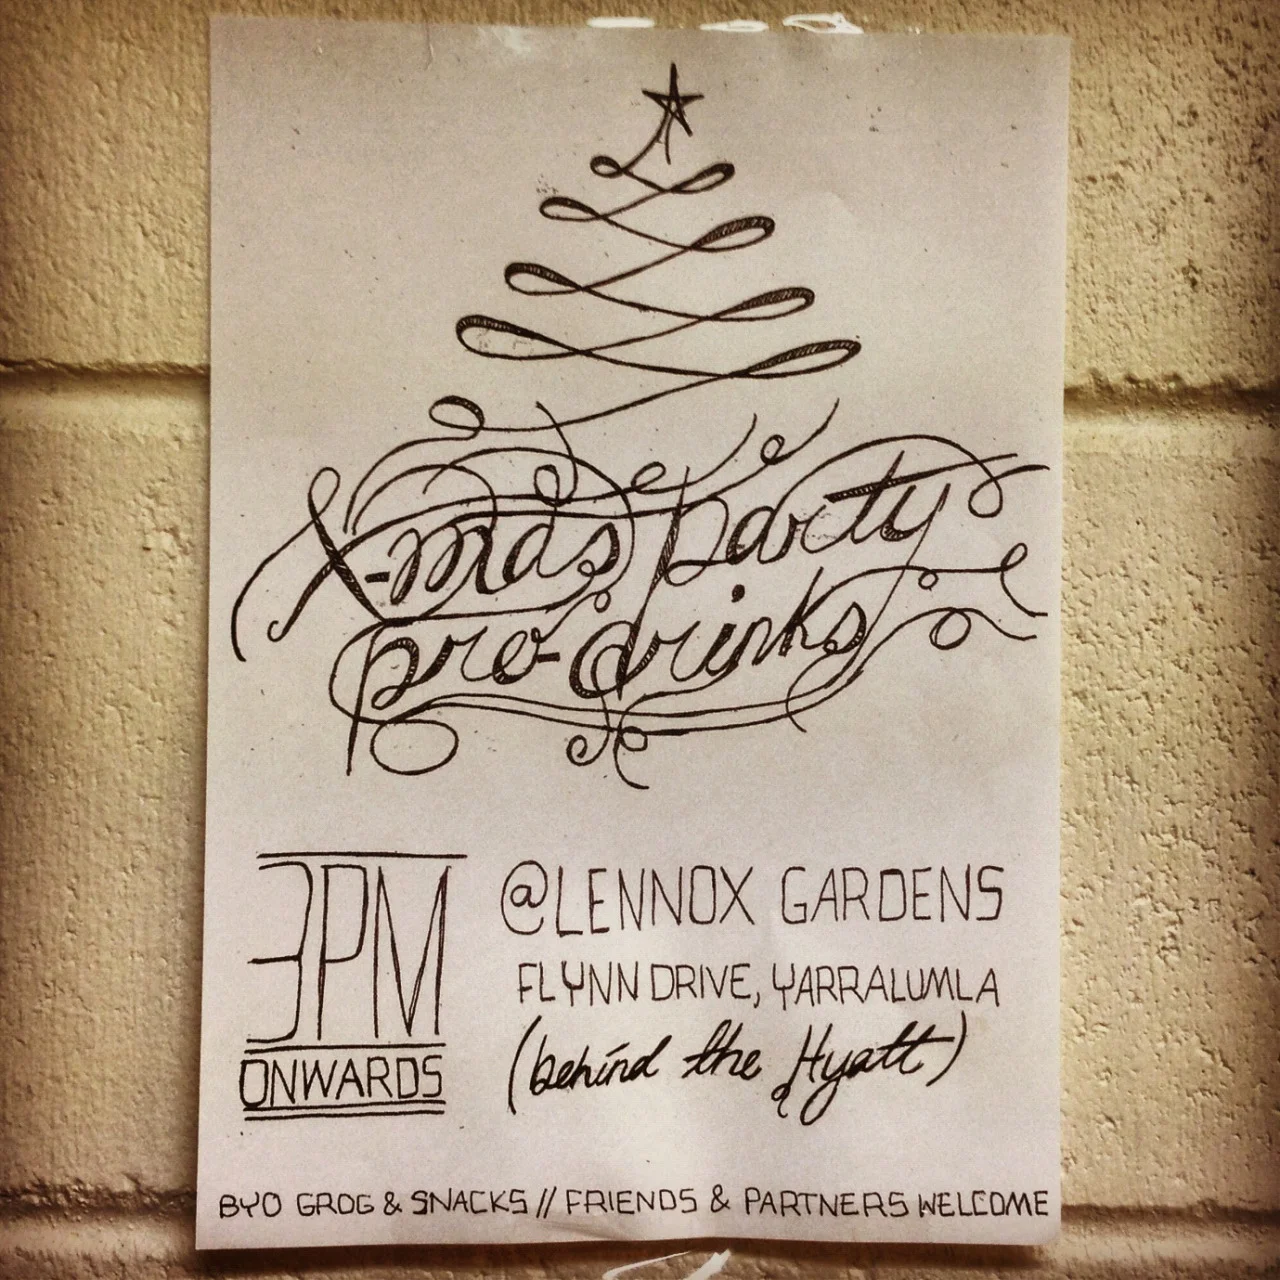 X-mas party
pro-drinks
3PM
ONWARDS
@LENNOX GARDENS
FLYNN DRIVE, YARRALUMLA
(behind the Hyatt)
BYO GROG & SNACKS // FRIENDS & PARTNERS WELCOME